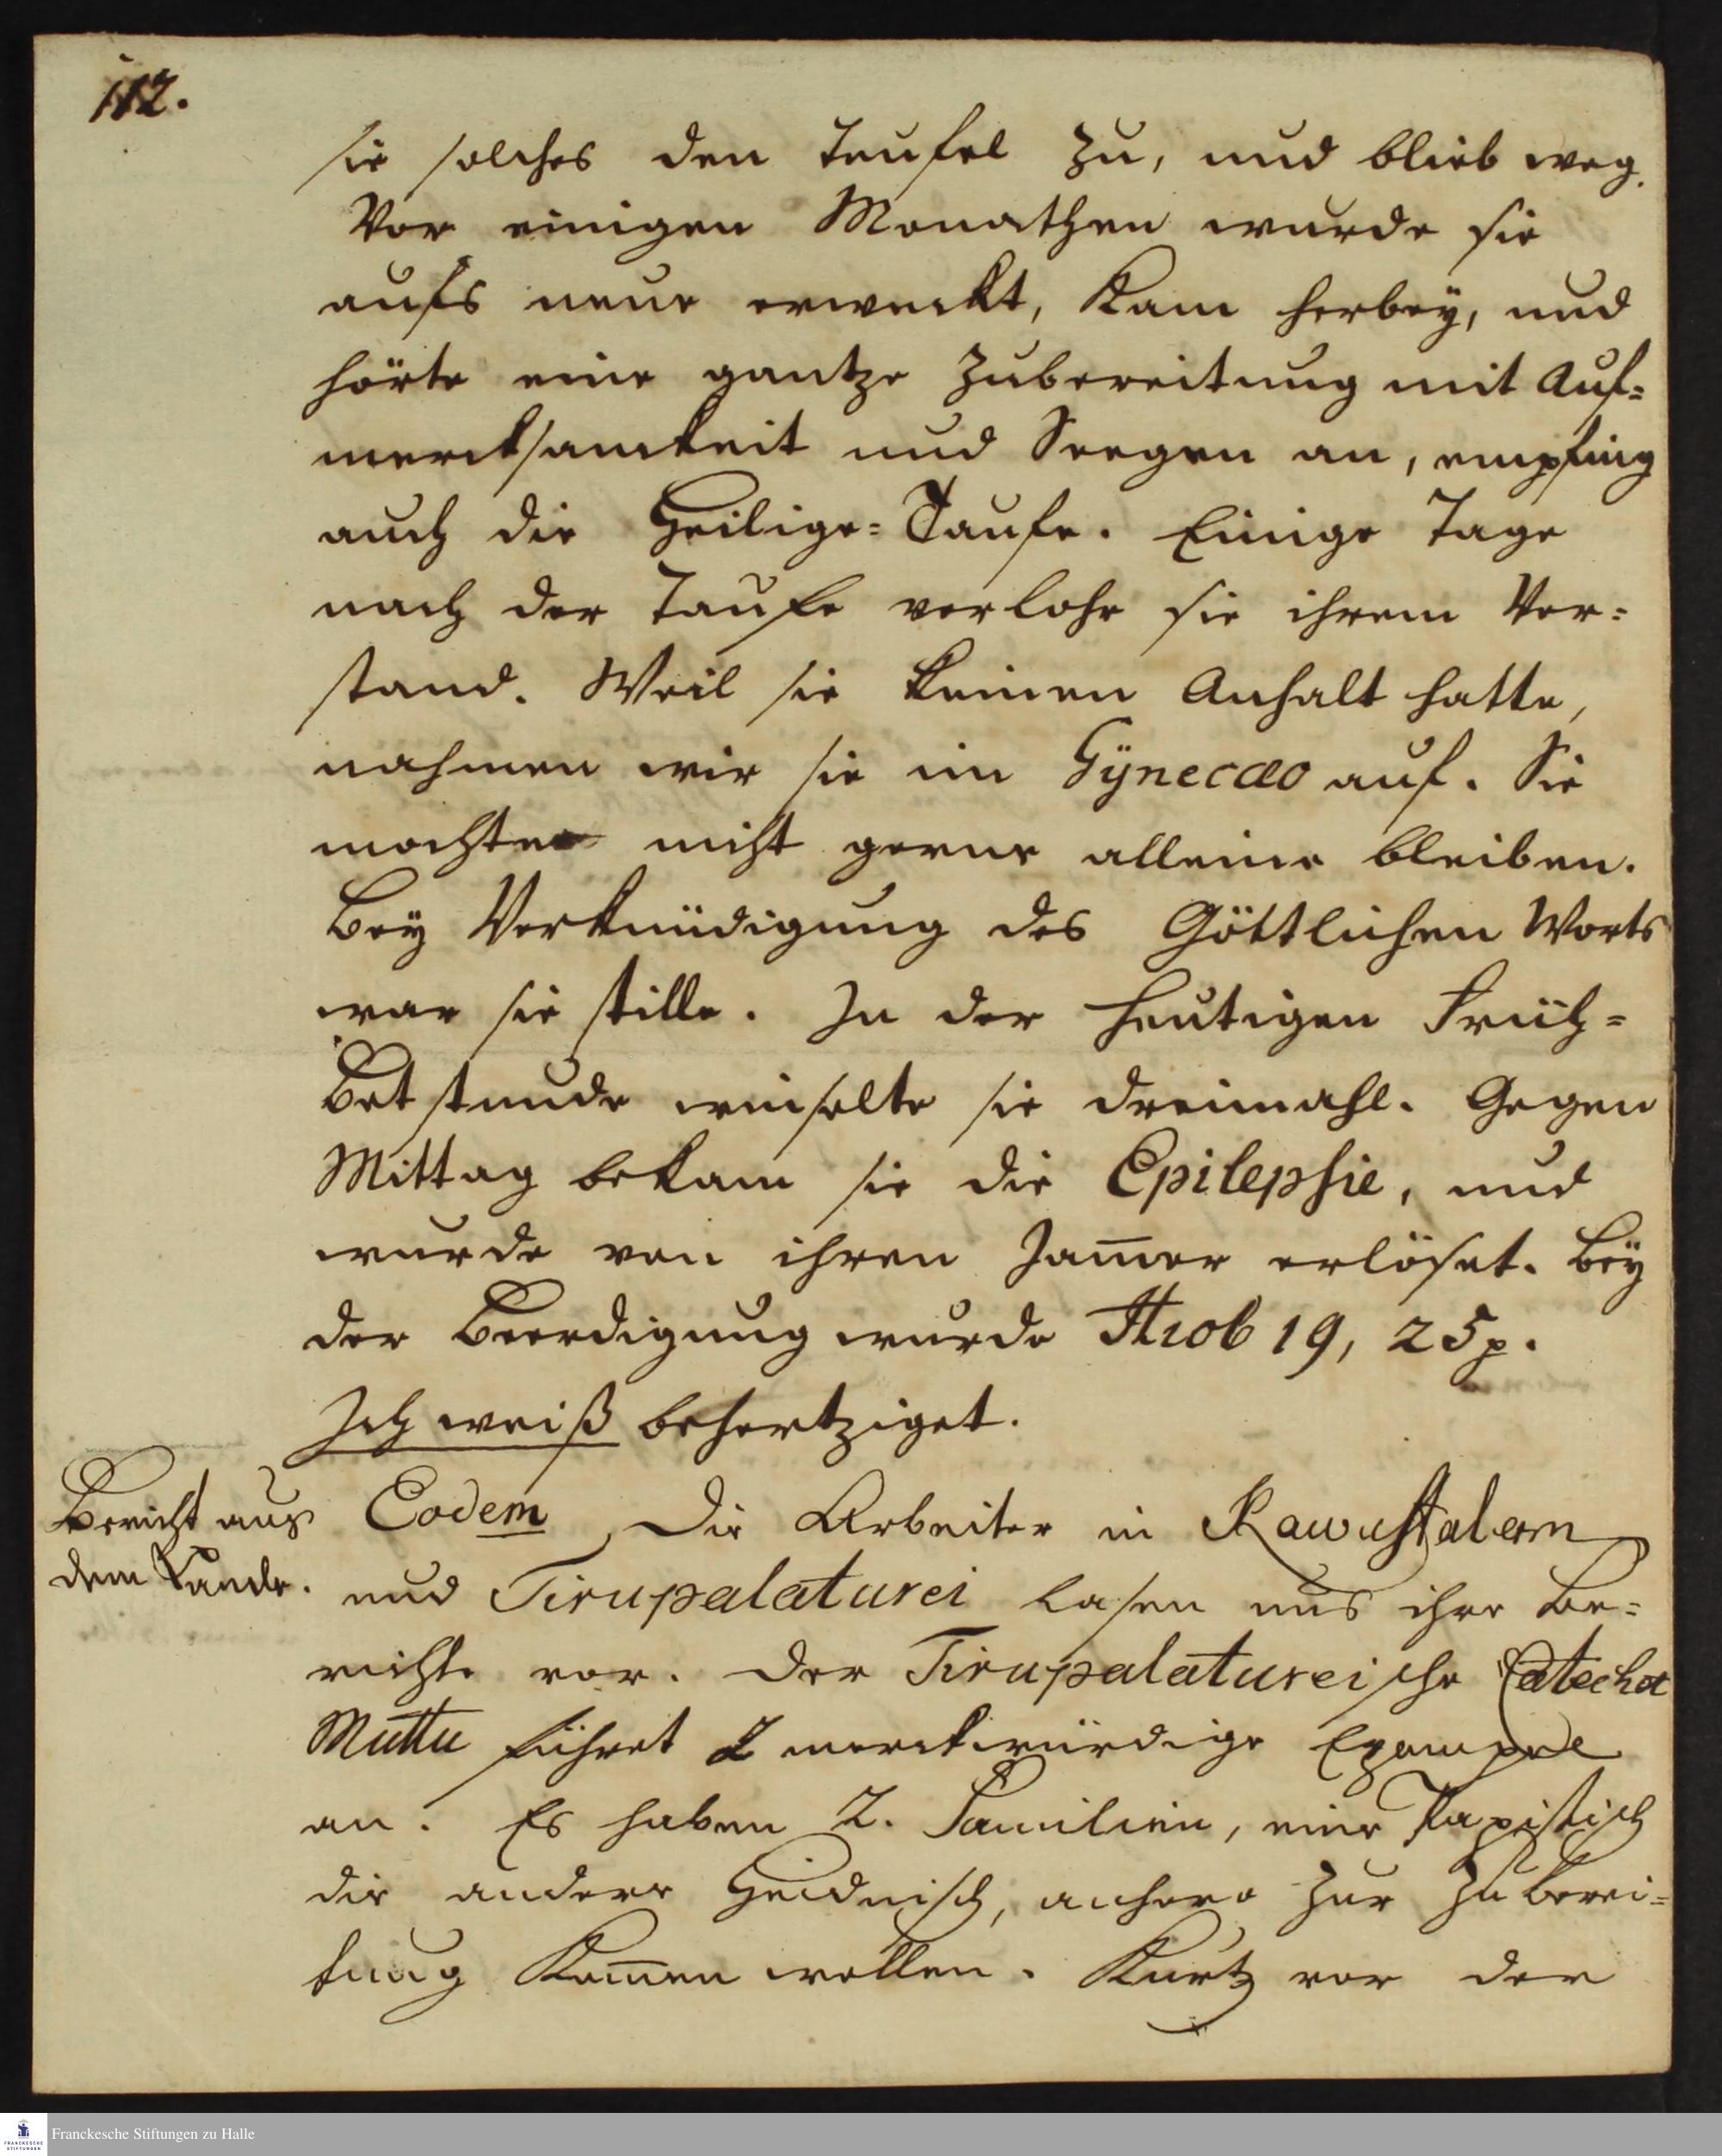 112.
sie solches den Teufel zu, und blieb weg.
Vor einigen Monathen wurde sie
aufs neue erweckt, kam herbey, und
hörte eine gantze Zubereitung mit Auf=
mercksamkeit und Seegen an, empfing
auch die Heilige=Taufe. Einige Tage
nach der Taufe verlohr sie ihrem Ver=
stand. Weil sie keinen Anhalt hatte,
nahmen wir sie im Gÿnecæo auf. Sie
mochte nicht gerne alleine bleiben.
Beÿ Verkündigung des Göttlichen Worts
war sie stille. In der heutigen Früh=
Betstunde winselte sie dreimahl. Gegen
Mittag bekam sie die Epilepsie, und
wurde von ihren Jam̅er erlöset. Beÿ
der Beerdigung wurde Hiob 19, 25 p.
Ich weiß behertziget.
Bericht aus
dem Lande.
Eodem Die Arbeiter in Rawustalam
und Tirupalaturei lasen uns ihre Be=
richte vor. Der Tirupalatureische Catechet
Muttu führet 2 merckwürdige Exempel
an. Es haben 2. Familien, eine Papistisch
die andere Heidnisch, anhero zur Zuberei=
tung kom̅en wollen. Kurtz vor der
Franckesche Stiftungen zu Halle
FRANCKESCHE
STIFTUNGEN